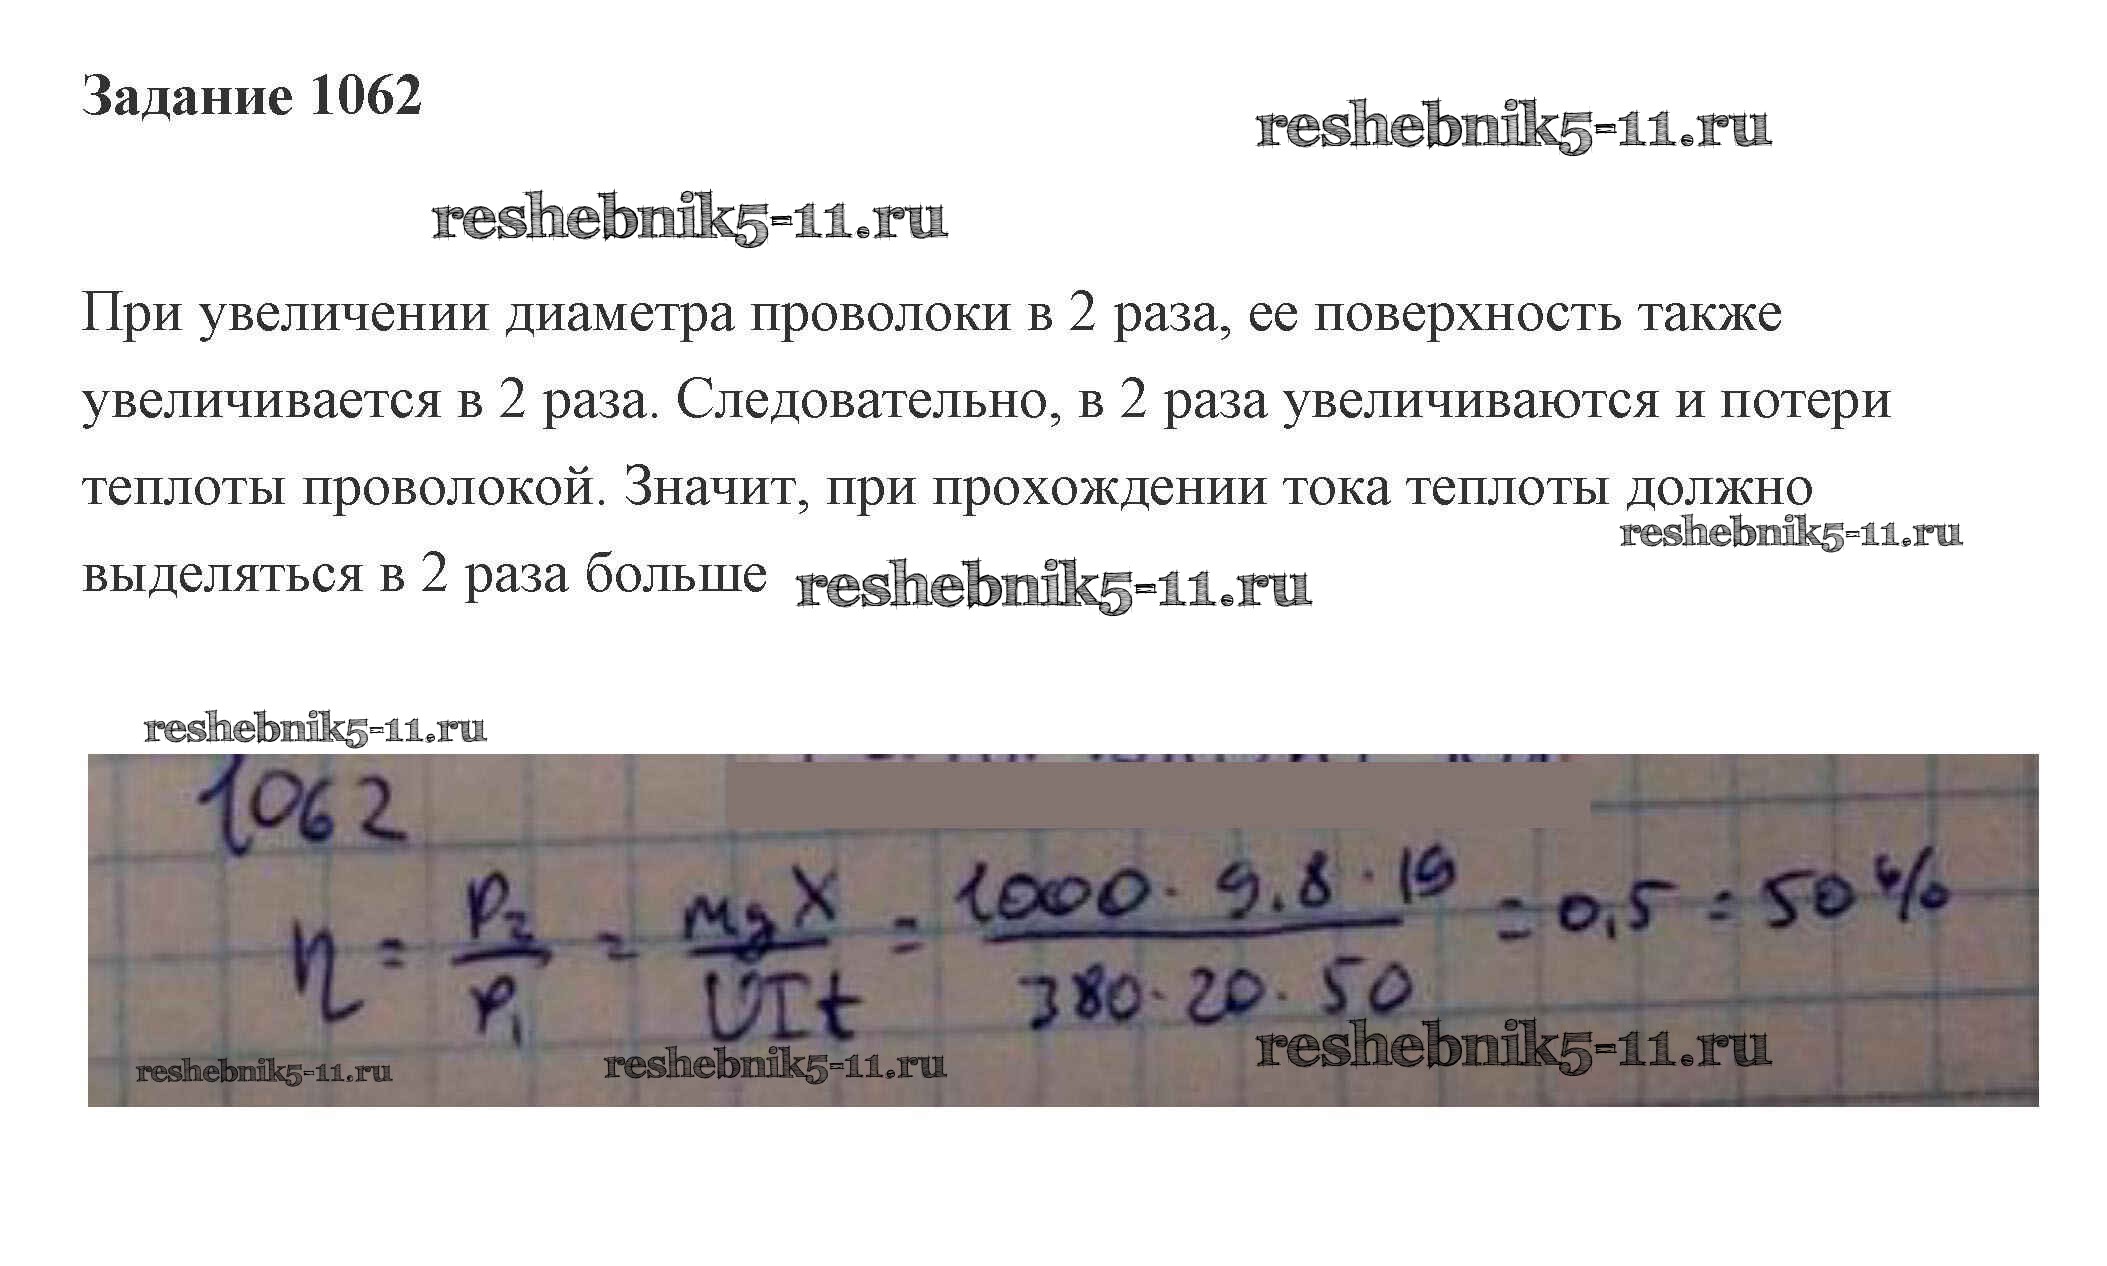 Задание 1062
reshebnik5-11.ru
reshebnik5-11.ru
При увеличении диаметра проволоки в 2 раза, ее поверхность также
увеличивается в 2 раза. Следовательно, в 2 раза увеличиваются и потери
теплоты проволокой. Значит, при прохождении тока теплоты должно
reshebnik5-11.ru
выделяться в 2 раза больше reshebnik5-11.ru
reshebnik5-11.ru
1062
η = P₂/P₁ = mgX/UIt = 1000 · 9.8 · 19/380 · 20 · 50 = 0,5 = 50%
reshebnik5-11.ru reshebnik5-11.ru reshebnik5-11.ru